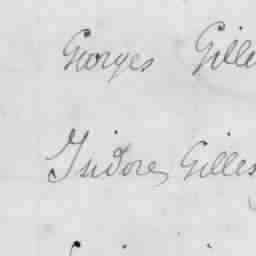 Georges Gille
Isidore Gilles